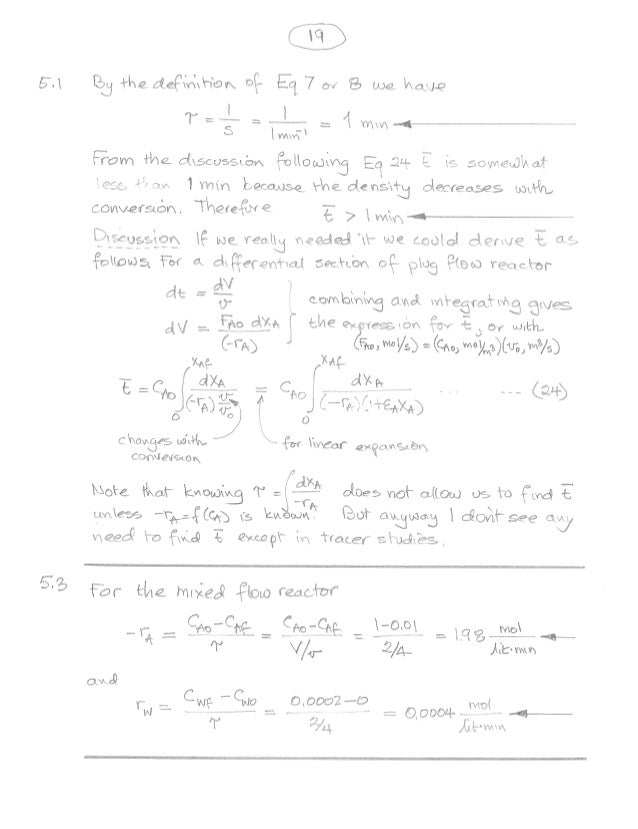 19
5.1 By the definition of Eq 7 or 8 we have
τ = 1/s = 1/(1 min⁻¹) = 1 min
From the discussion following Eq 24 t̄ is somewhat
less than 1 min because the density decreases with
conversion. Therefore t̄ > 1 min
Discussion If we really needed it we could derive t̄ as
follows, For a differential section of plug flow reactor
dt = dV/v
combining and integrating gives
dV = F_A0 dX_A/(-r_A)
the expression for t̄, or with
(F_A0, mol/s) = (C_A0, mol/m³)(v_0, m³/s)
t̄ = C_A0 ∫₀^X_Af dX_A/((-r_A) v/v_0) = C_A0 ∫₀^X_Af dX_A/((-r_A)(1+ε_A X_A)) ... ... (24)
changes with conversion
for linear expansion
Note that knowing τ = ∫ dX_A/-r_A does not allow us to find t̄
unless -r_A = f(C_A) is known. But anyway I don't see any
need to find t̄ except in tracer studies.
5.3 For the mixed flow reactor
-r_A = (C_A0 - C_Af)/τ = (C_A0 - C_Af)/(V/v) = (1-0.01)/(2/4) = 1.98 mol/lit·min
and
r_W = (C_Wf - C_W0)/τ = (0.0002-0)/(2/4) = 0.0004 mol/lit·min